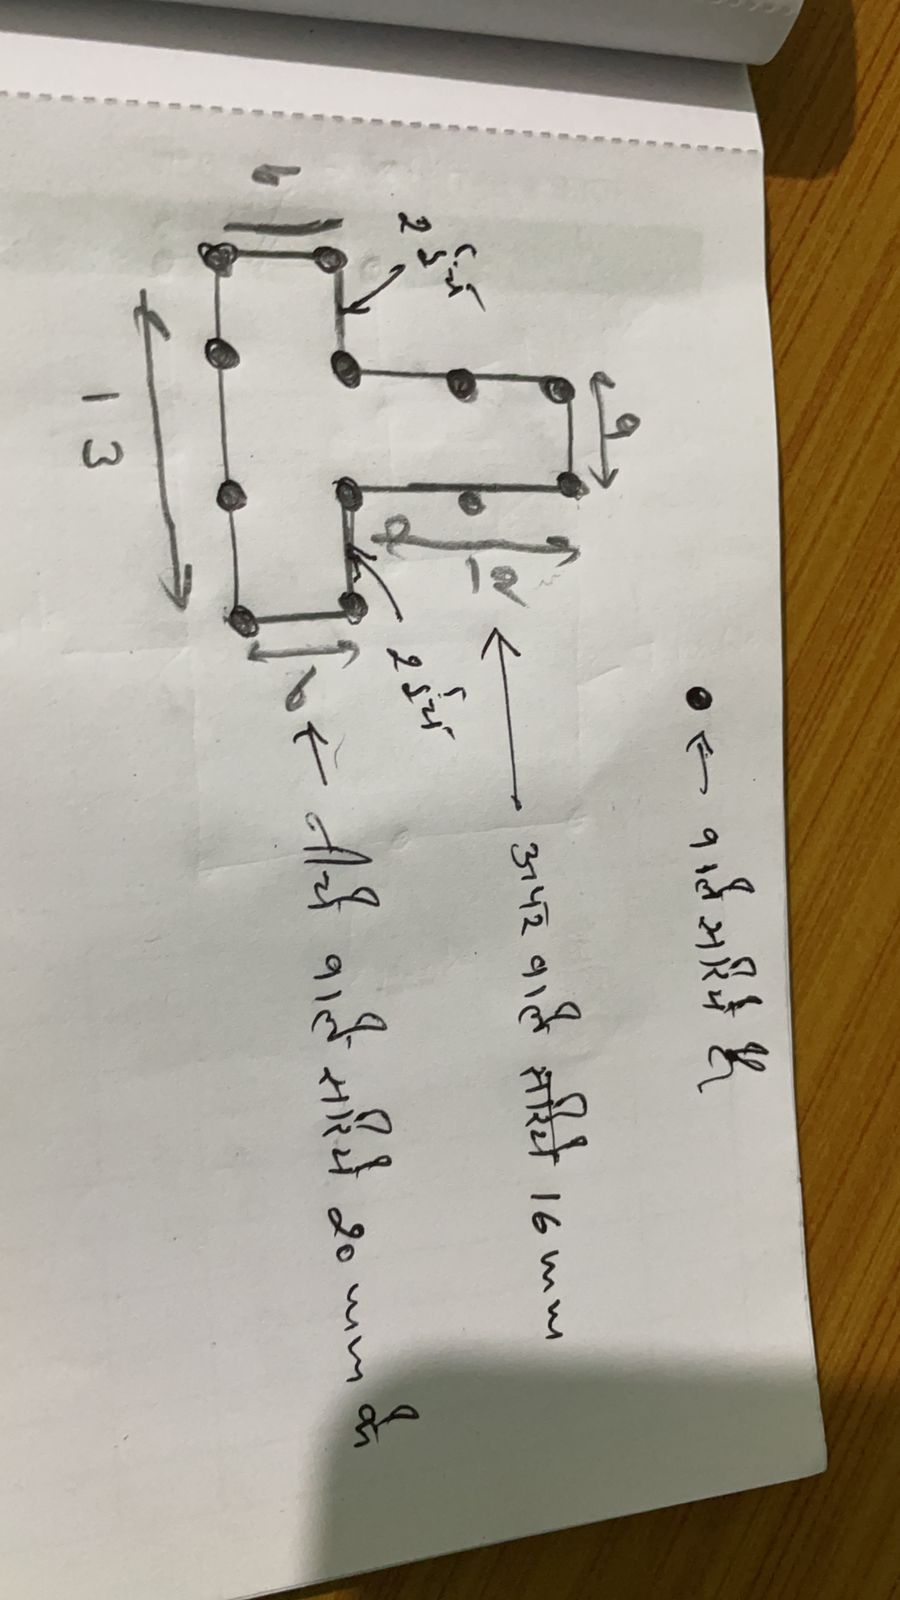 ● ← वाले सरिये हैं
9
12
← अपर वाले सरिये 16 mm
2 इंच
2 इंच
6
6
← नीचे वाले सरिये 20 mm के
13